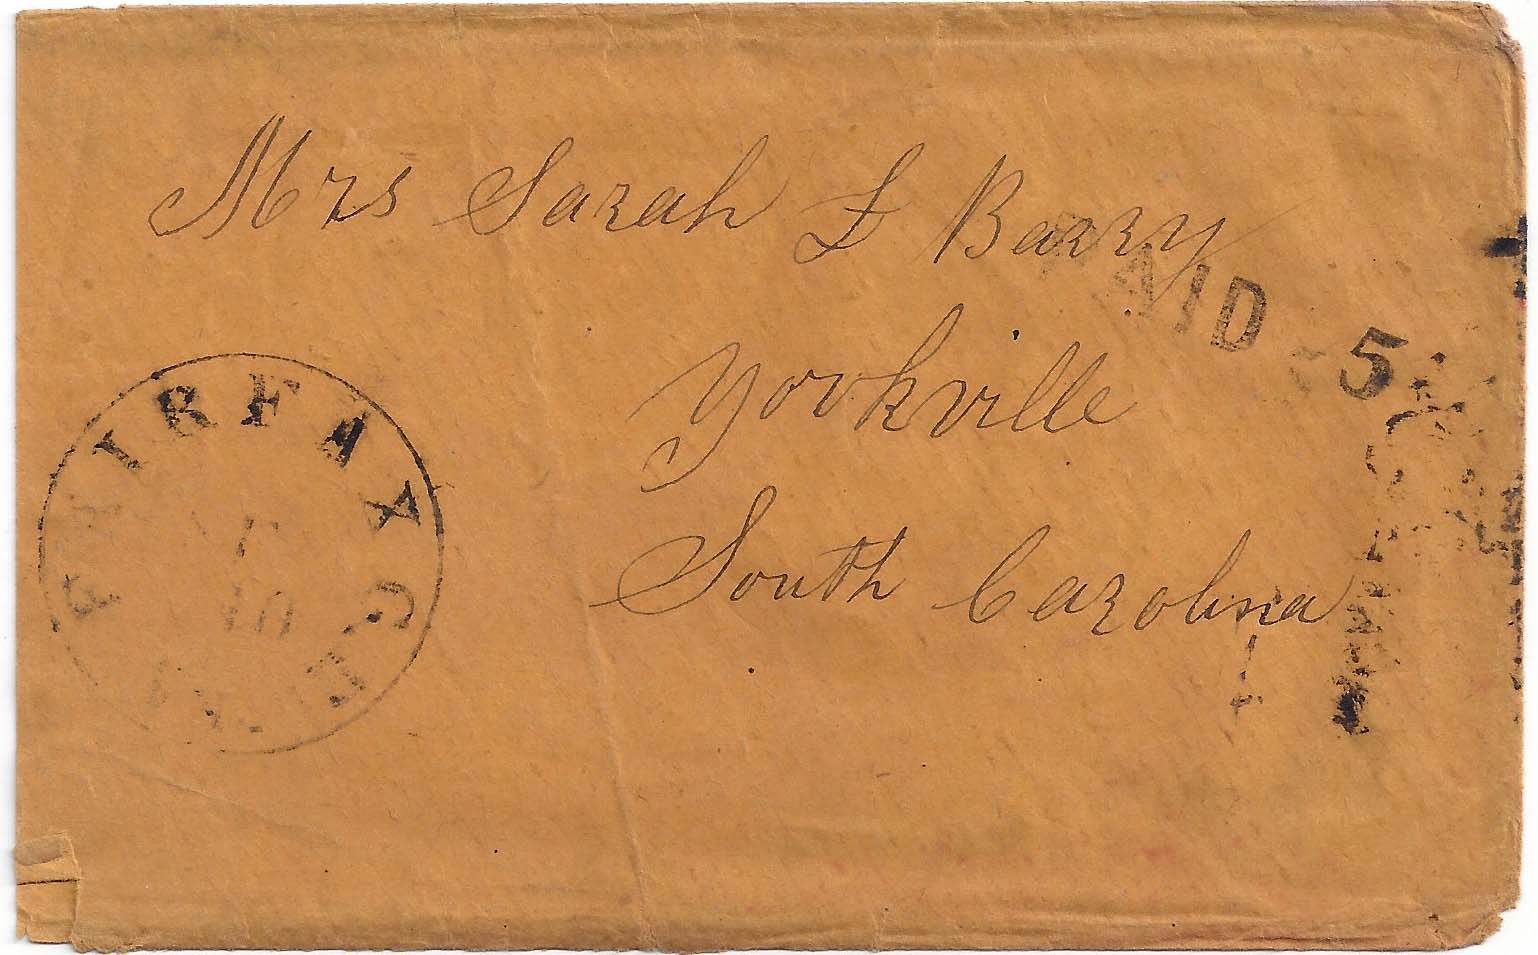 Mrs Sarah F Barry
PAID 5
Yorkville
South Carolina
FAIRFAX C.H.
10